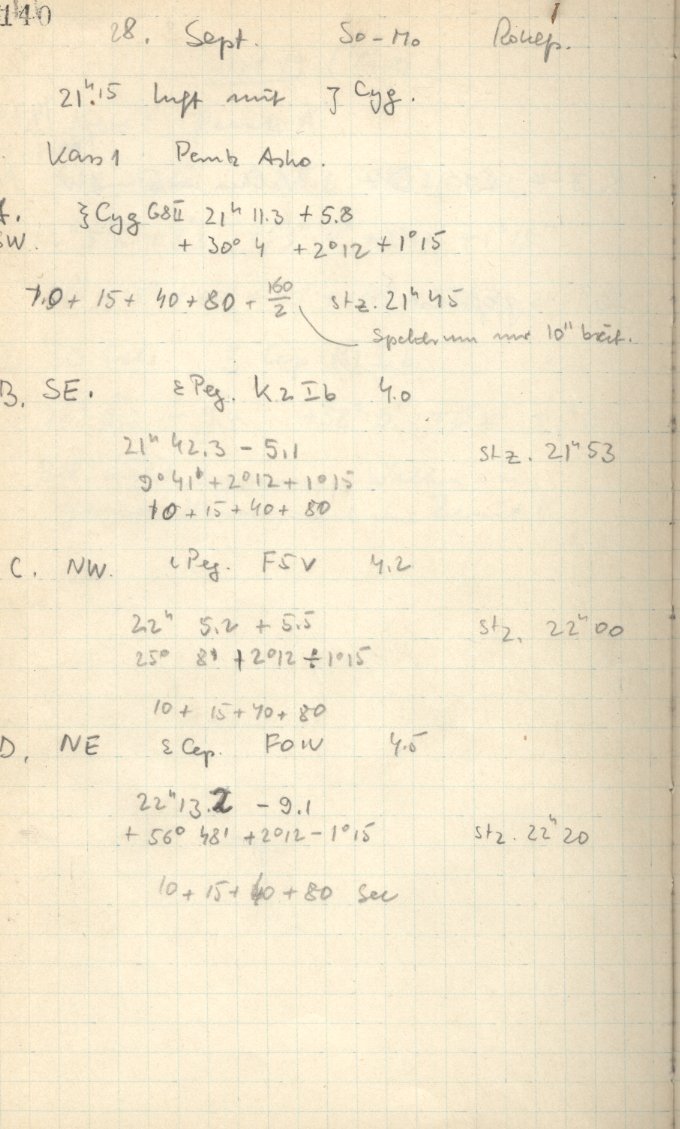 140
28. Sept. So-Mo
21ʰ.15 Luft mit ζ Cyg.
Kass1
A. ζ Cyg G8II 21ʰ 11.3 + 5.8
SW. + 30° 4 + 2°12 + 1°15
10 + 15 + 40 + 80 + 160/2 stz. 21ʰ45
Spektrum nur 10" breit.
B. SE. ε Peg. K2 Ib 4.0
21ʰ 42.3 - 5.1 stz. 21ʰ53
9° 41' + 2°12 + 1°15
10 + 15 + 40 + 80
C. NW. ι Peg. F5V 4.2
22ʰ 5.2 + 5.5 stz. 22ʰ00
25° 8' + 2°12 ÷ 1°15
10 + 15 + 40 + 80
D. NE ε Cep. F0IV 4.5
22ʰ13.2 - 9.1
+ 56° 48' + 2°12 - 1°15 stz. 22ʰ20
10 + 15 + 40 + 80 Sec